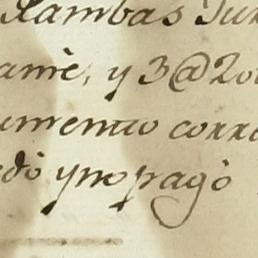 Rambas Jun
amè, y 3@20
umento corre
dò yno pagò